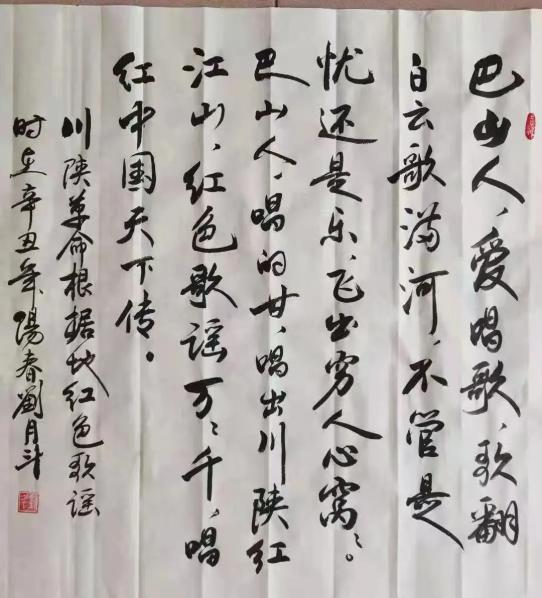 巴山人,爱唱歌,歌翻
白云歌满河,不管是
忧还是乐,飞出穷人心窝窝。
巴山人,唱的甘,唱出川陕红
江山,红色歌谣万万千,唱
红中国天下传。
川陕革命根据地红色歌谣
时在辛丑年陽春劉月斗